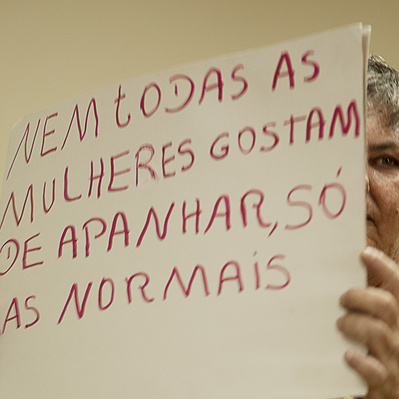 NEM TODAS AS
MULHERES GOSTAM
DE APANHAR, SÓ
AS NORMAIS